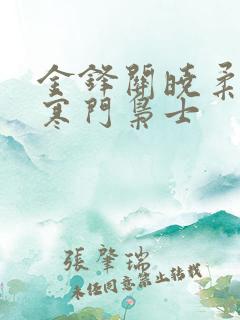 金鋒關曉柔
寒門梟士
張肇瑞
未经同意禁止转载